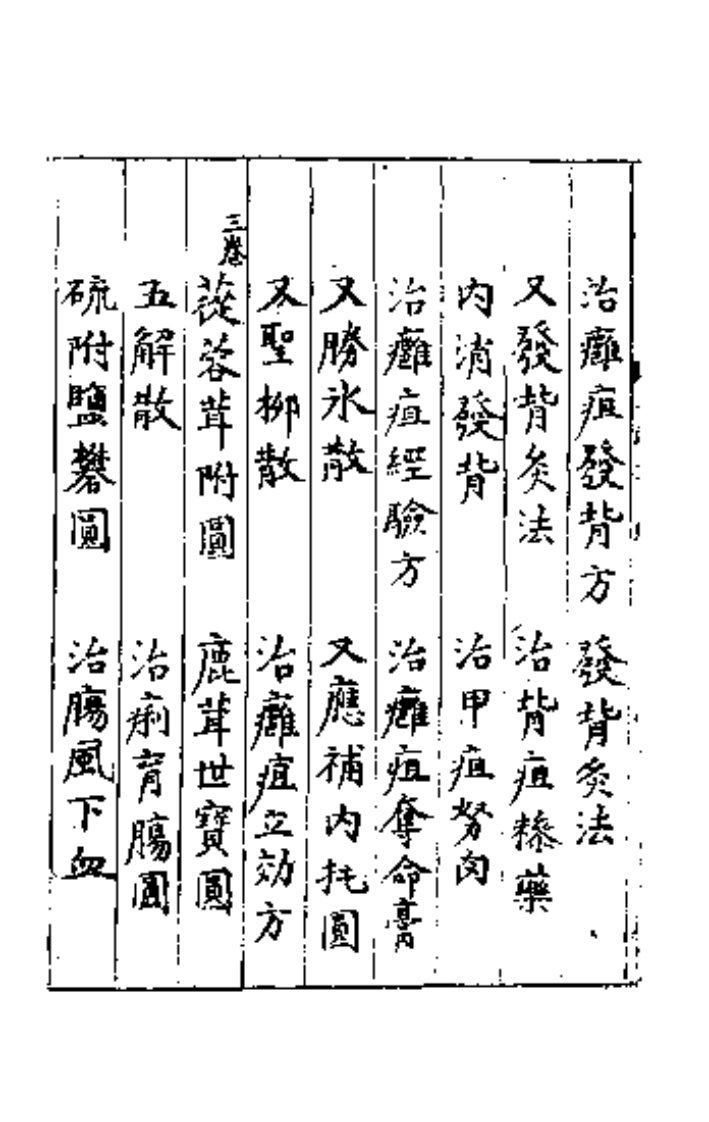 治癰疽發背方　發背灸法
又發背灸法　治背疽𣻳藥
内消發背　治甲疽努肉
治癰疽經驗方　治癰疽奪命膏
又勝氷散　又應補内托圓
又聖柳散　治癰疽立効方
三卷
蓯蓉茸附圓　鹿茸世寶圓
五解散　治痢育腸圓
硫附鹽礬圓　治腸風下血